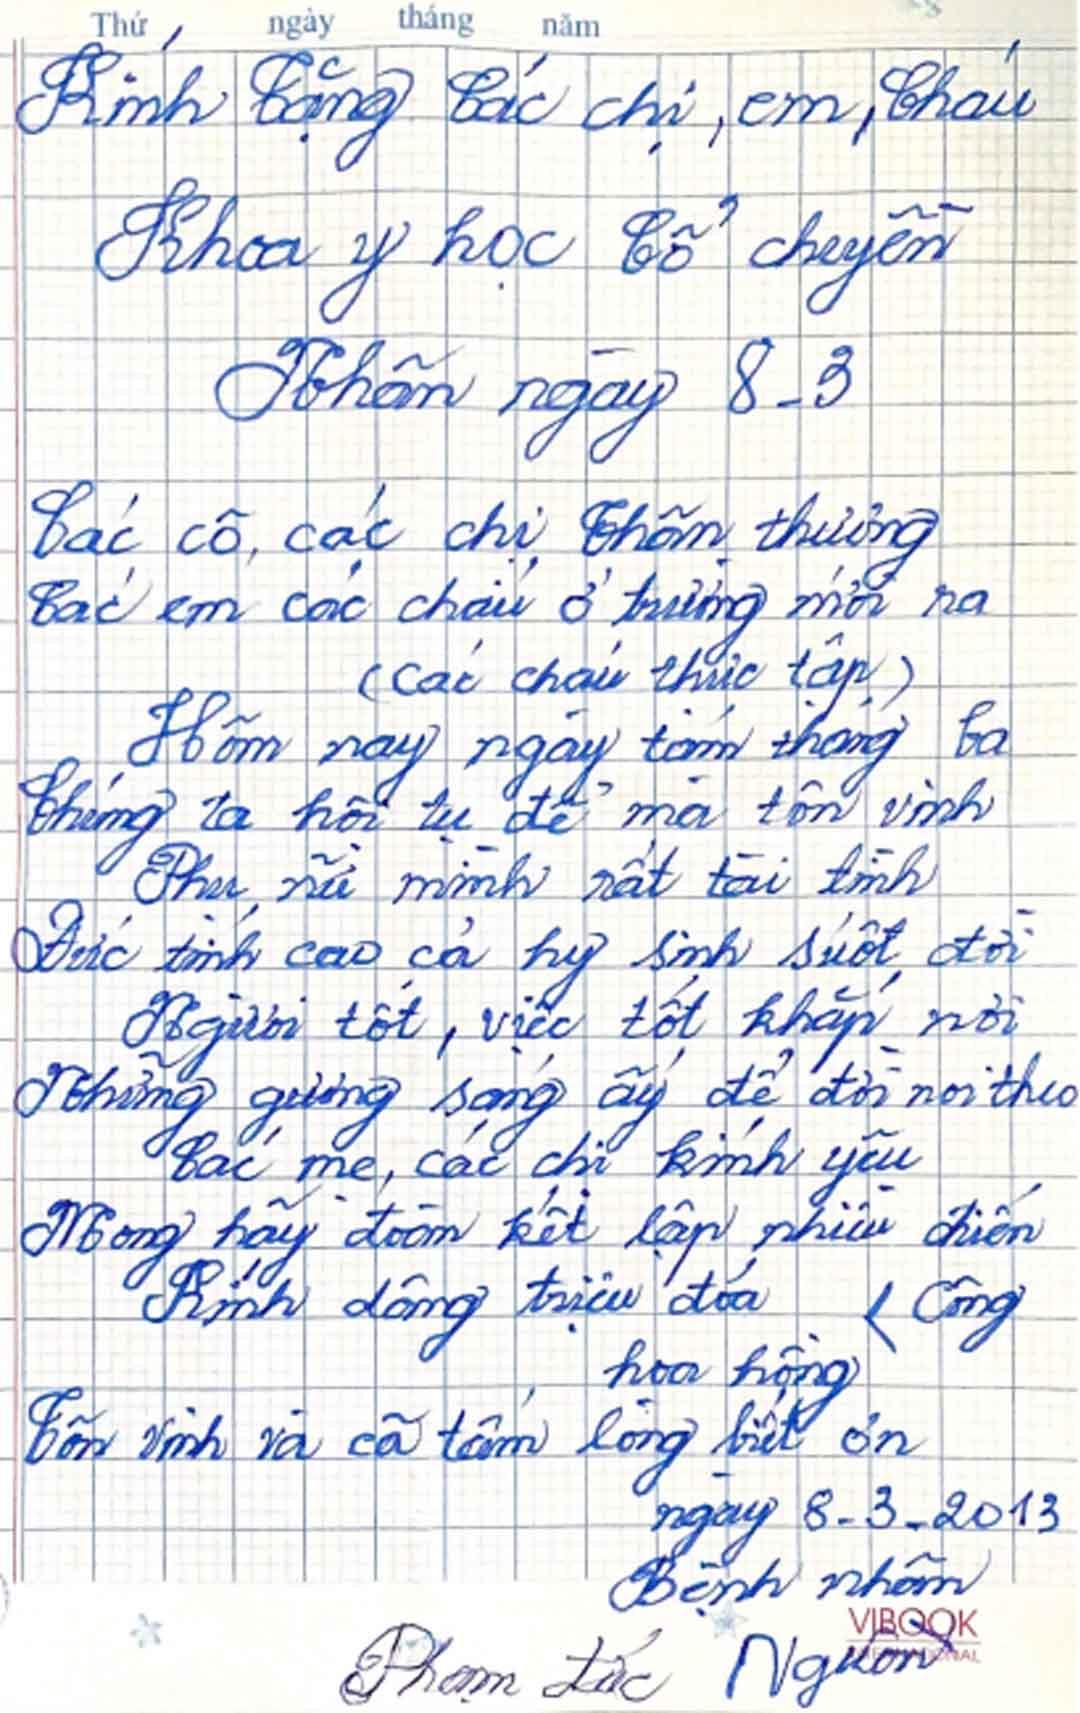 Thứ ngày tháng năm
Kính tặng các chị, em, cháu
Khoa y học cổ chuyền
Nhân ngày 8-3
Các cô, các chị thân thương
Các em các cháu ở trường mới ra
(các cháu thực tập)
Hôm nay ngày tám tháng ba
Chúng ta hội tụ để mà tôn vinh
Phụ nữ mình rất tài tình
Đức tính cao cả hy sinh suốt đời
Người tốt, việc tốt khắp nơi
Những gương sáng ấy để đời noi theo
Các mẹ, các chị kính yêu
Mong hãy đoàn kết lập nhiều chiến
Kính dâng triệu đóa ( Công
hoa hồng
Tôn vinh và cả tấm lòng biết ơn
ngày 8-3-2013
Bệnh nhân
VIBOOK
INTERNATIONAL
Phạm Đức Nguồn